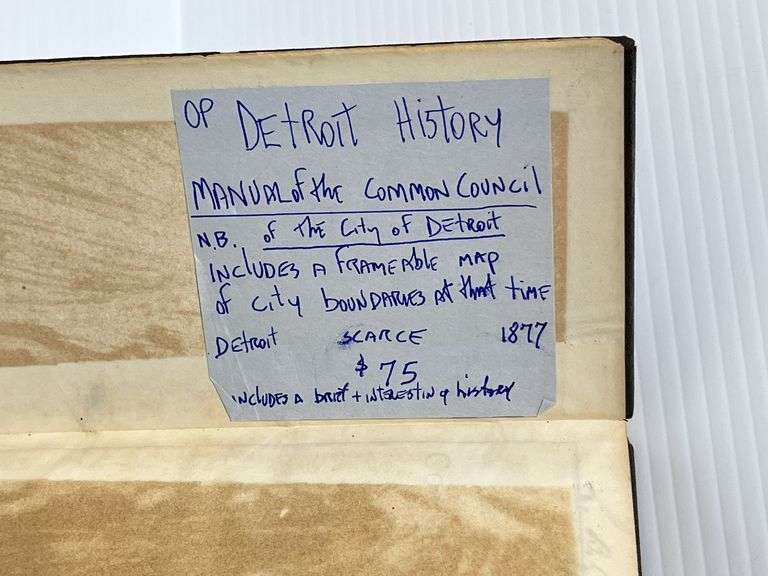 OP DETROIT HISTORY
MANUAL of the COMMON COUNCIL
N.B. of THE City of DETROIT
INCLUDES A FRAMEABLE MAP
of City BOUNDARIES At that TIME
DETROIT SCARCE 1877
$75
INCLUDES A BRIEF + INTERESTING history